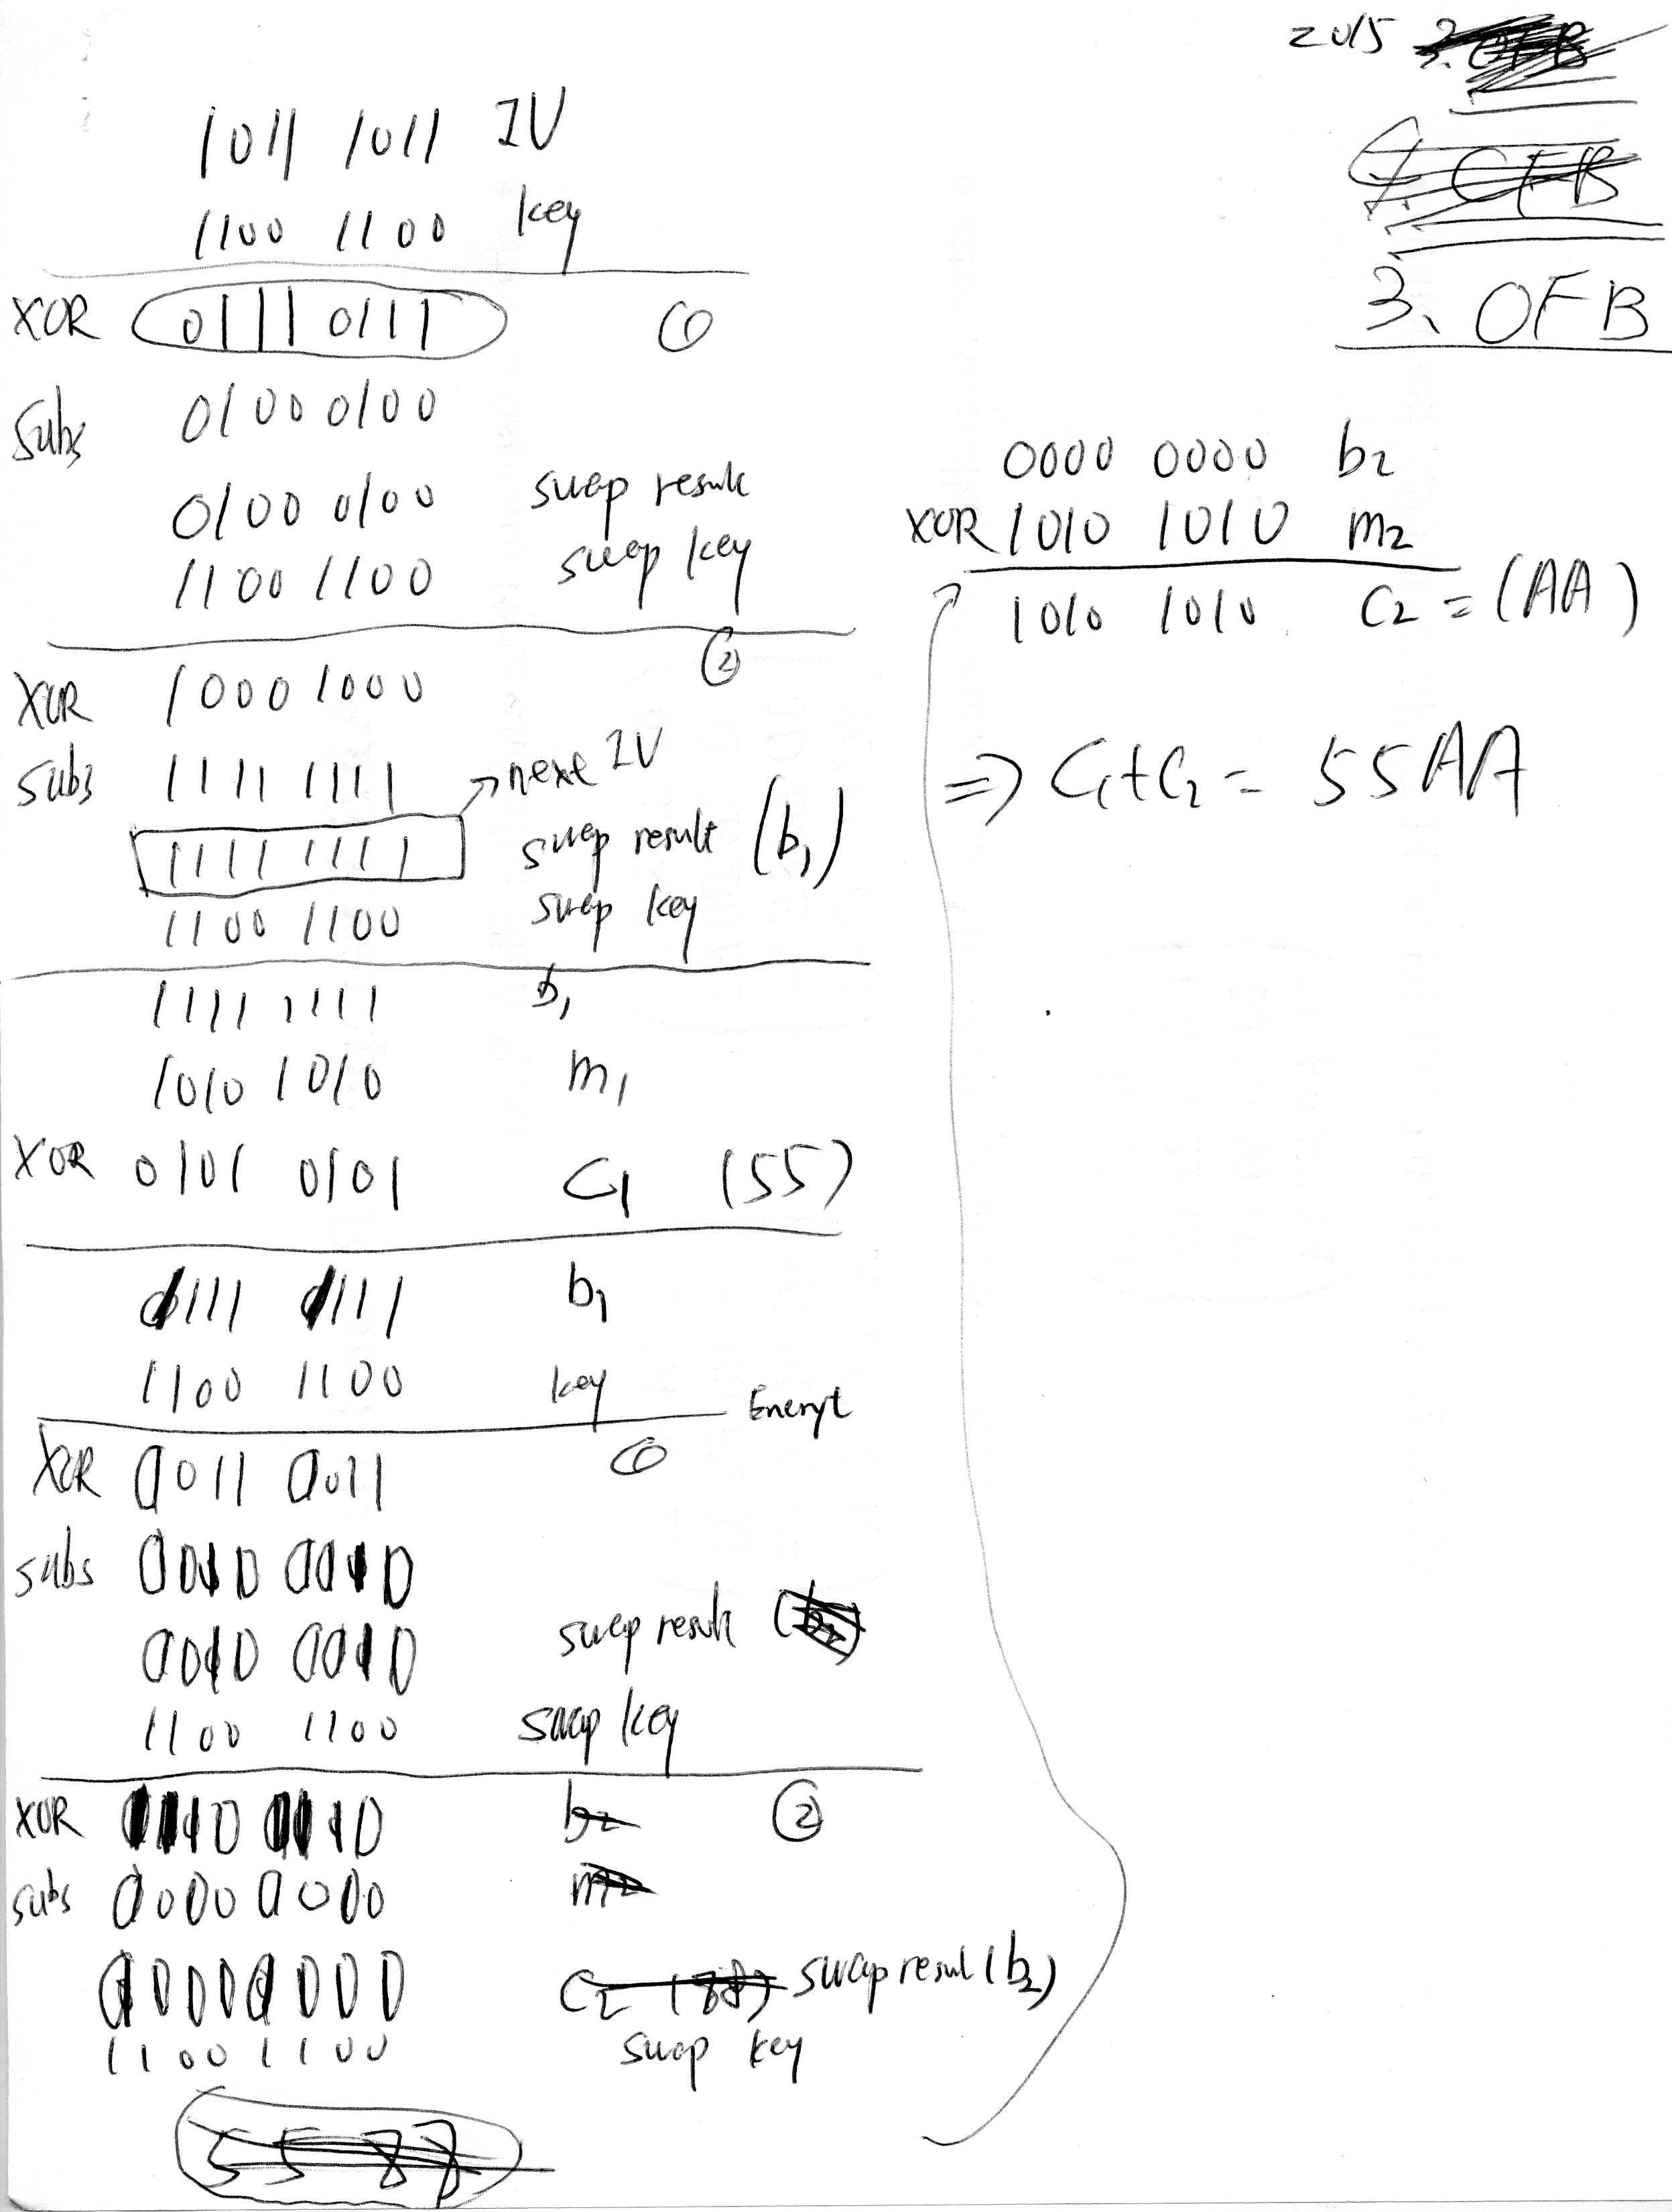 2015
3. OFB
1011 1011 IV
1100 1100 key
XOR 0111 0111 ①
Subs 0100 0100
0100 0100 swap result
1100 1100 swap key
②
XOR 1000 1000
Subs 1111 1111 → next IV
1111 1111 swap result (b1)
1100 1100 swap key
1111 1111 b1
1010 1010 m1
XOR 0101 0101 C1 (55)
1111 1111 b1
1100 1100 key
Encryt
XOR 0011 0011 ①
subs 0010 0010
0010 0010 swap result
1100 1100 swap key
XOR 1110 1110 ②
subs 0000 0000
0000 0000 swap result (b2)
1100 1100 swap key
0000 0000 b2
XOR 1010 1010 m2
1010 1010 C2 = (AA)
⇒ C1+C2 = 55AA